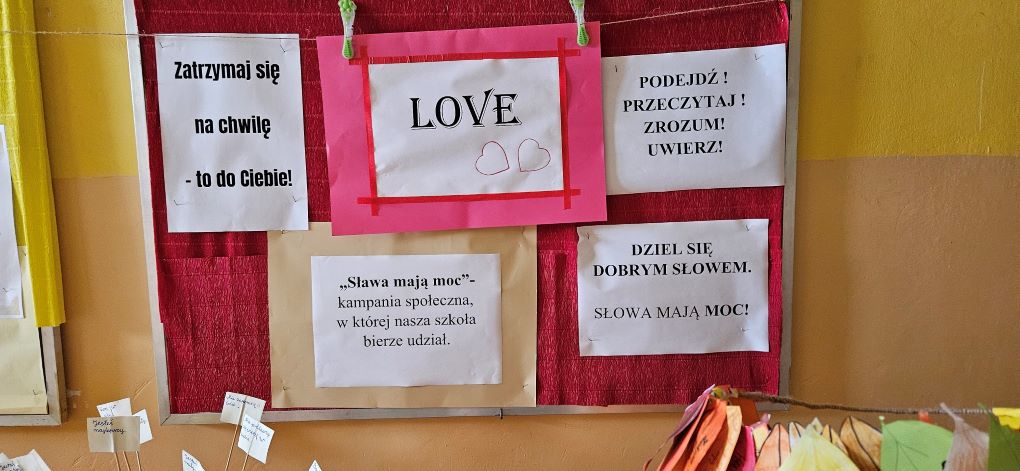 Zatrzymaj się
na chwilę
- to do Ciebie!
LOVE
PODEJDŹ !
PRZECZYTAJ !
ZROZUM!
UWIERZ!
„Sława mają moc”-
kampania społeczna,
w której nasza szkoła
bierze udział.
DZIEL SIĘ
DOBRYM SŁOWEM.
SŁOWA MAJĄ MOC!
Jesteś